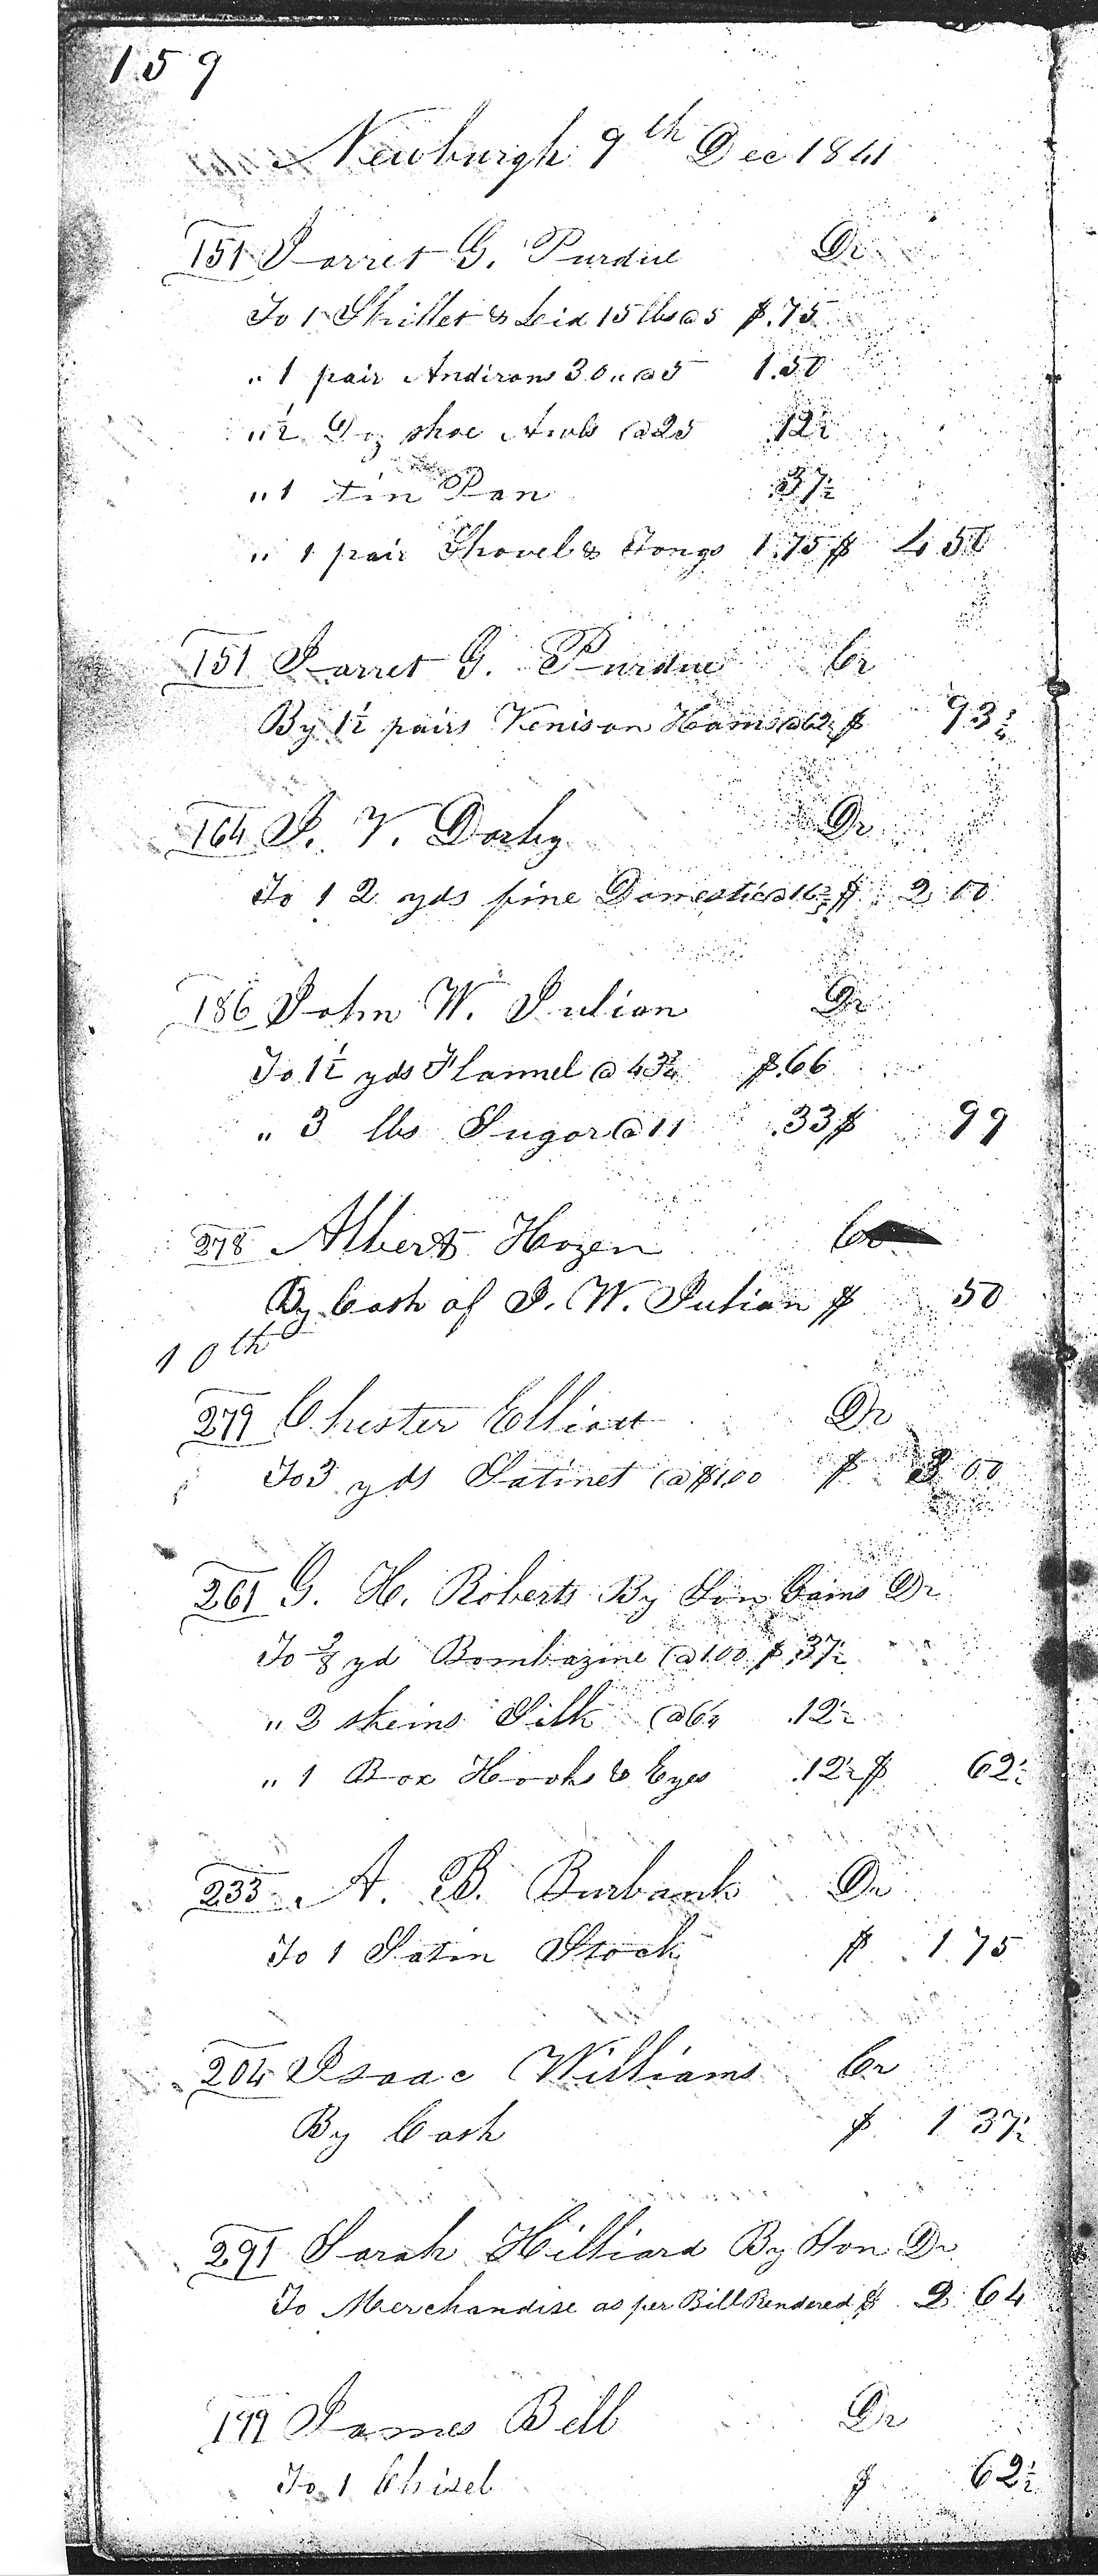 159
Newburgh 9th Dec 1841
151 Jarret G. Purdue Dr
To 1 Skillet & Lid 15 lbs @ 5 $.75
" 1 pair Andirons 30 " @ 5 1.50
" ½ Doz shoe Awls @ 25 12½
" 1 tin Pan .37½
" 1 pair Shovel & Tongs 1.75 $ 4 50
151 Jarret G. Purdue Cr
By 1½ pairs Venison Hams @ 62½ $ 93¾
164 J. V. Darby Dr
To 12 yds fine Domestic @ 16⅔ $ 2 00
186 John W. Julian Dr
To 1½ yds Flannel @ 43¾ $.66
" 3 lbs Sugar @ 11 .33 $ 99
278 Albert Hazen Cr
By Cash of J. W. Julian $ 50
10th
279 Chester Elliott Dr
To 3 yds Satinet @ $1.00 $ 3 00
261 G. H. Roberts By Son Gains Dr
To ⅜ yd Bombazine @ 1.00 $.37½
" 2 skeins Silk @ 6¼ .12½
" 1 Box Hooks & Eyes .12½ $ 62½
233 A. B. Burbank Dr
To 1 Satin Stock $ 1 75
204 Isaac Williams Cr
By Cash $ 1 37½
291 Sarah Hilliard By Son Dr
To Merchandise as per Bill Rendered $ 2 64
199 James Bell Dr
To 1 Chisel $ 62½